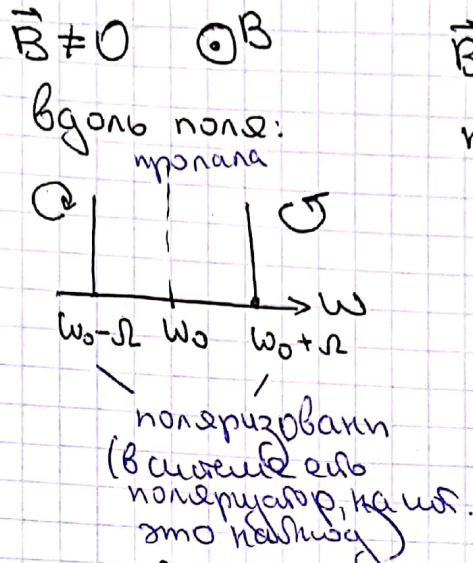 B⃗ ≠ 0 ⊙B
вдоль поля:
пропала
ω₀-Ω ω₀ ω₀+Ω ω
поляризованы
(в системе есть
поляризатор, на кот.
это наблюд)
B⃗